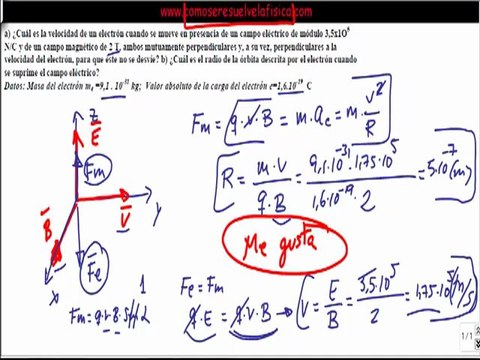 www.comoseresuelvelafisica.com
a) ¿Cuál es la velocidad de un electrón cuando se mueve en presencia de un campo eléctrico de módulo 3,5x10⁵
N/C y de un campo magnético de 2 T, ambos mutuamente perpendiculares y, a su vez, perpendiculares a la
velocidad del electrón, para que éste no se desvíe? b) ¿Cuál es el radio de la órbita descrita por el electrón cuando
se suprime el campo eléctrico?
Datos: Masa del electrón mₑ =9,1 . 10⁻³¹ kg; Valor absoluto de la carga del electrón e=1,6.10⁻¹⁹ C
Fm = q·v·B = m·ac = m· v²/R
R = m·v / q·B = 9,1·10⁻³¹·1,75·10⁵ / 1,6·10⁻¹⁹·2 = 5·10⁻⁷ (m)
Z
E
Fm
B
V
Y
Fe
X
Me gusta
Fe = Fm
q·E = q·v·B
V = E/B = 3,5·10⁵ / 2 = 1,75·10⁵ m/s
1/1